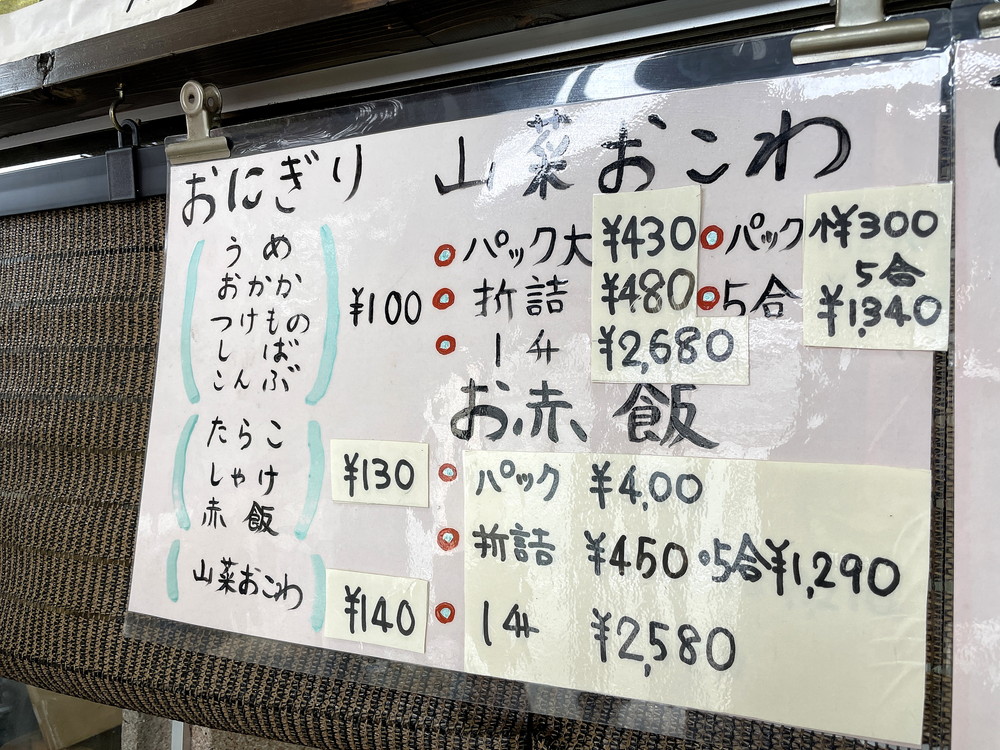 おにぎり
うめ
おかか
つけもの
しば
こんぶ
¥100
たらこ
しゃけ
赤飯
¥130
山菜おこわ
¥140
山菜おこわ
パック大 ¥430 パック小 ¥300
折詰 ¥480 5合 5合 ¥1,340
1升 ¥2,680
お赤飯
パック ¥4,00
折詰 ¥450・5合¥1,290
1升 ¥2,580